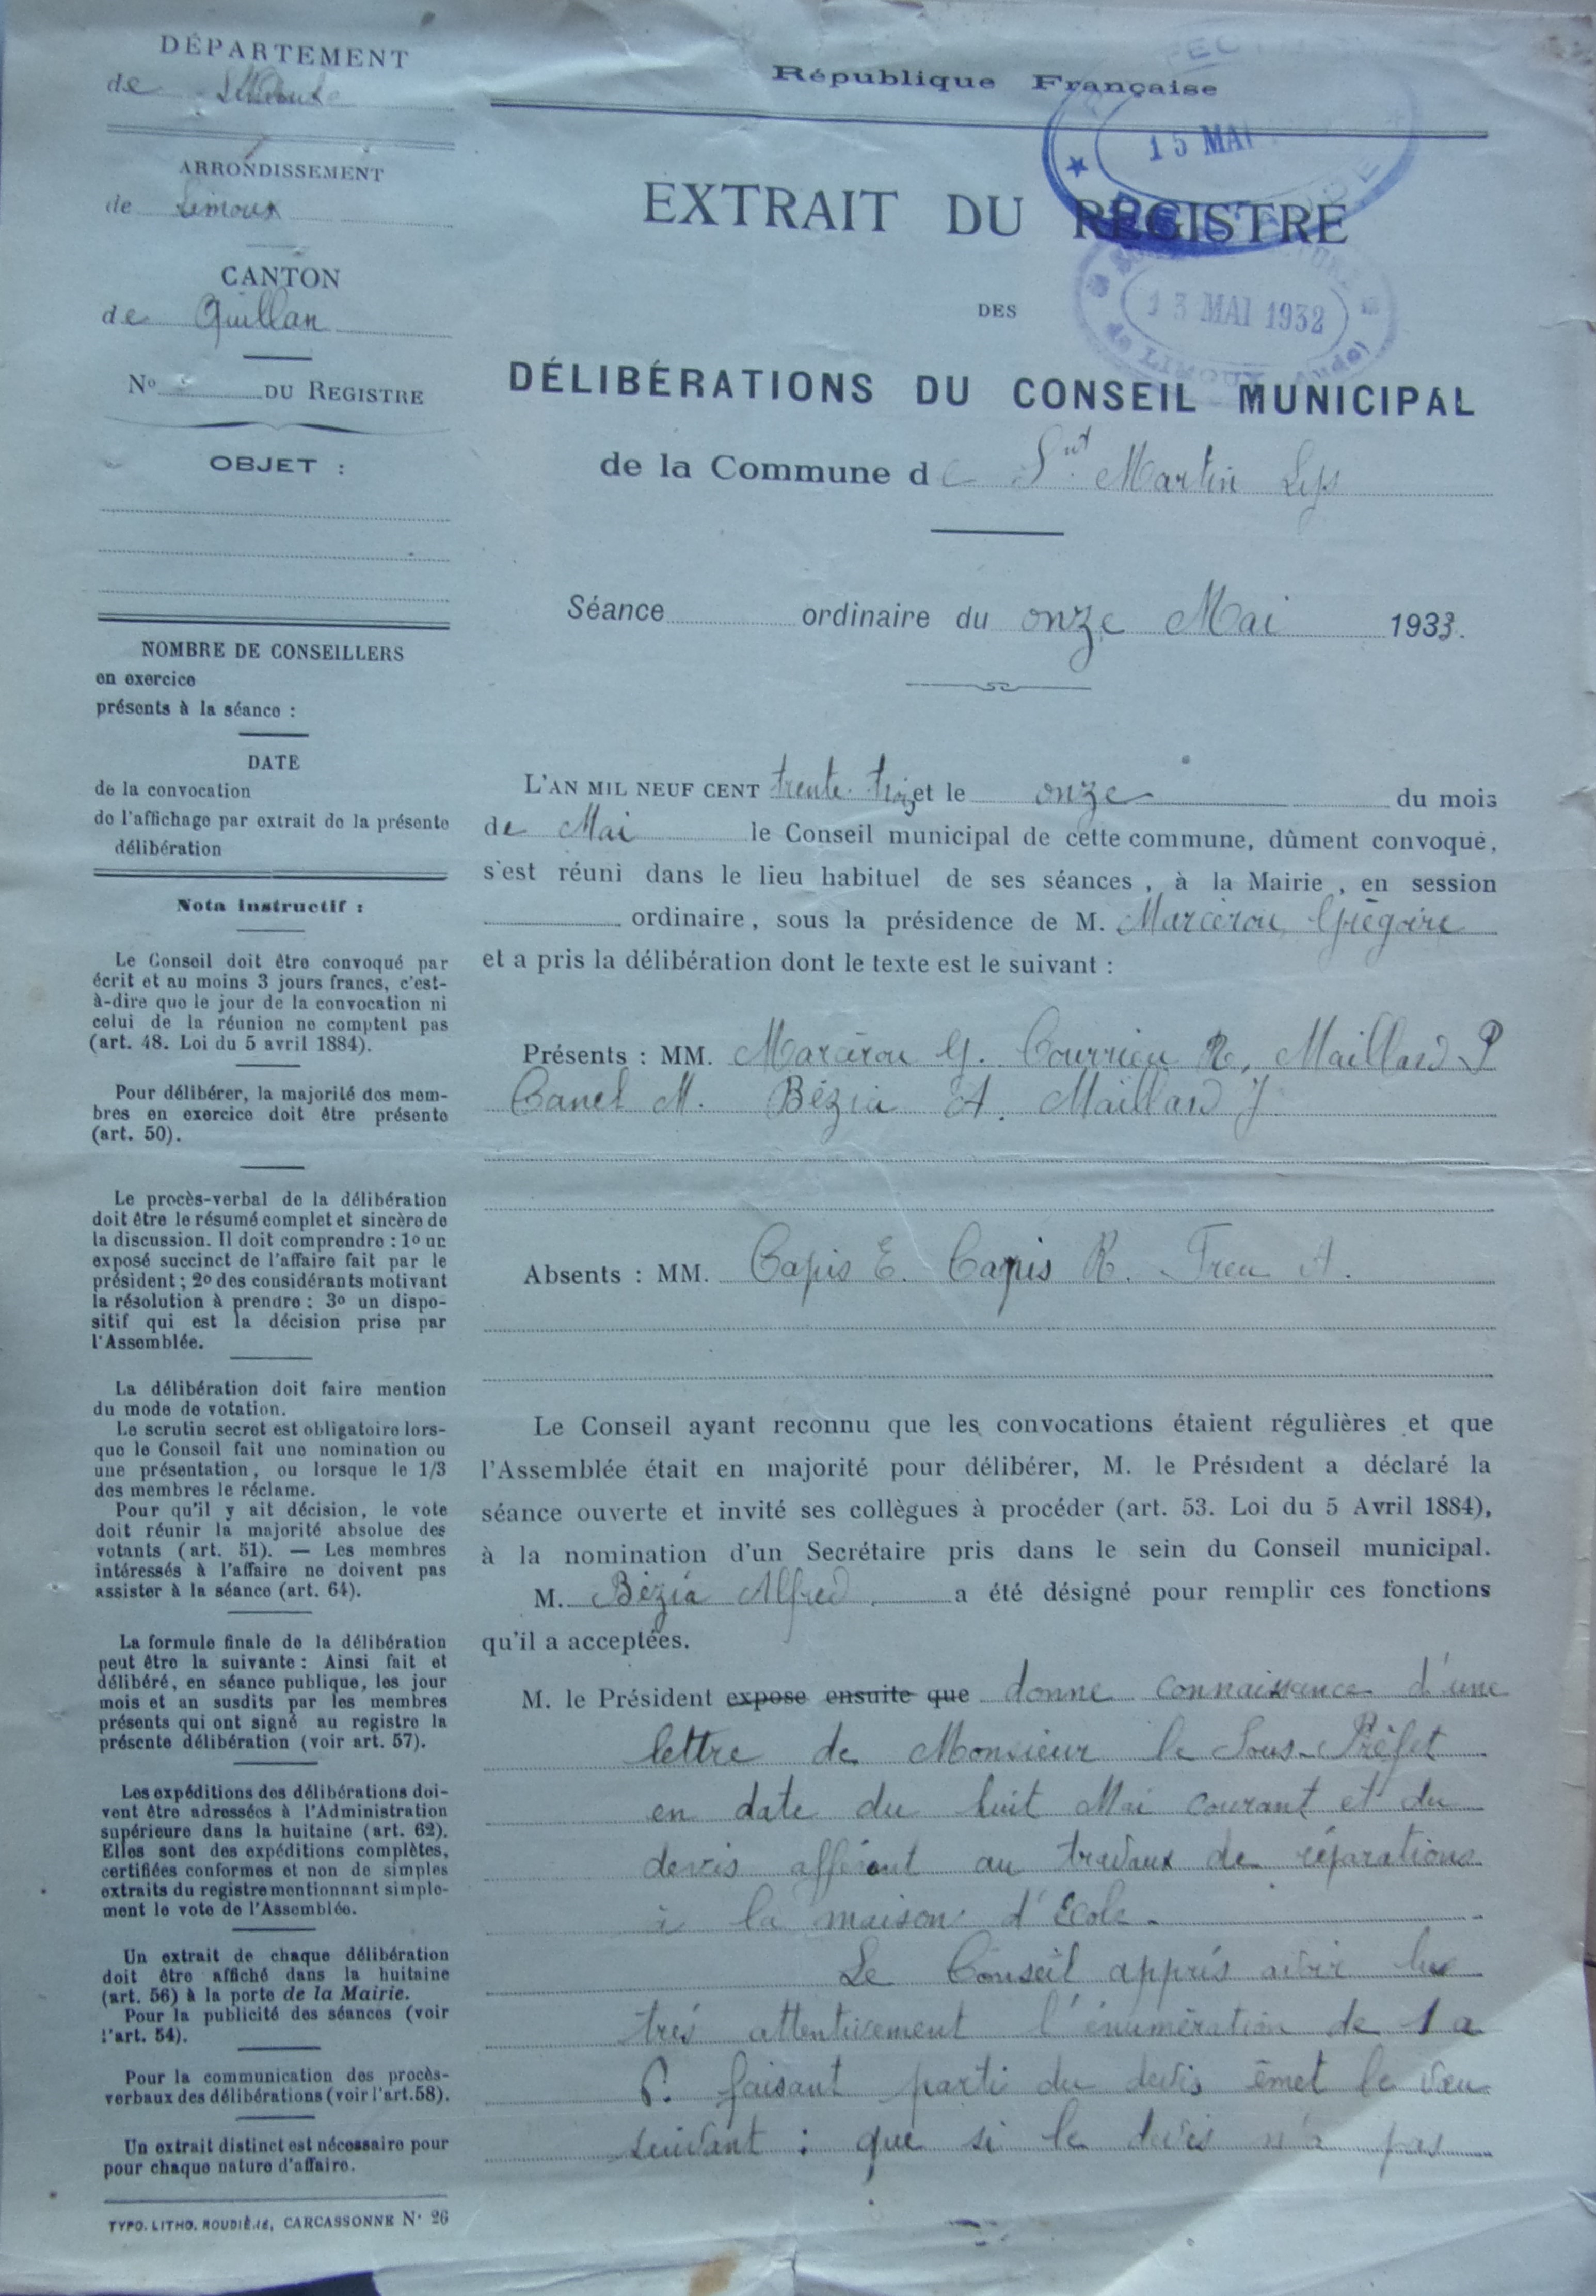 DÉPARTEMENT
de l'Aude
ARRONDISSEMENT
de Limoux
CANTON
de Quillan
No DU REGISTRE
OBJET :
NOMBRE DE CONSEILLERS
en exercice
présents à la séance :
DATE
de la convocation
de l'affichage par extrait de la présente
délibération
Nota Instructif :
Le Conseil doit être convoqué par
écrit et au moins 3 jours francs, c'est-
à-dire que le jour de la convocation ni
celui de la réunion ne comptent pas
(art. 48. Loi du 5 avril 1884).
Pour délibérer, la majorité des mem-
bres en exercice doit être présente
(art. 50).
Le procès-verbal de la délibération
doit être le résumé complet et sincère de
la discussion. Il doit comprendre : 1o un
exposé succinct de l'affaire fait par le
président ; 2o des considérants motivant
la résolution à prendre ; 3o un dispo-
sitif qui est la décision prise par
l'Assemblée.
La délibération doit faire mention
du mode de votation.
Le scrutin secret est obligatoire lors-
que le Conseil fait une nomination ou
une présentation, ou lorsque le 1/3
des membres le réclame.
Pour qu'il y ait décision, le vote
doit réunir la majorité absolue des
votants (art. 51). — Les membres
intéressés à l'affaire ne doivent pas
assister à la séance (art. 64).
La formule finale de la délibération
peut être la suivante : Ainsi fait et
délibéré, en séance publique, les jour
mois et an susdits par les membres
présents qui ont signé au registre la
présente délibération (voir art. 57).
Les expéditions des délibérations doi-
vent être adressées à l'Administration
supérieure dans la huitaine (art. 62).
Elles sont des expéditions complètes,
certifiées conformes et non de simples
extraits du registre mentionnant simple-
ment le vote de l'Assemblée.
Un extrait de chaque délibération
doit être affiché dans la huitaine
(art. 56) à la porte de la Mairie.
Pour la publicité des séances (voir
l'art. 54).
Pour la communication des procès-
verbaux des délibérations (voir l'art. 58).
Un extrait distinct est nécessaire pour
pour chaque nature d'affaire.
TYPO. LITHO. ROUDIÈRE, CARCASSONNE No 26
République Française
15 MAI
EXTRAIT DU REGISTRE
DES
13 MAI 1932
de LIMOUX (Aude)
DÉLIBÉRATIONS DU CONSEIL MUNICIPAL
de la Commune de St Martin Lys
Séance ordinaire du onze Mai 1933.
L'AN MIL NEUF CENT trente trois et le onze du mois
de Mai le Conseil municipal de cette commune, dûment convoqué,
s'est réuni dans le lieu habituel de ses séances, à la Mairie, en session
ordinaire, sous la présidence de M. Marcérou Grégoire
et a pris la délibération dont le texte est le suivant :
Présents : MM. Marcérou G. Courrieu R, Maillard P
Canel M. Bézia A. Maillard J
Absents : MM. Capis E. Capis R. Freu A.
Le Conseil ayant reconnu que les convocations étaient régulières et que
l'Assemblée était en majorité pour délibérer, M. le Président a déclaré la
séance ouverte et invité ses collègues à procéder (art. 53. Loi du 5 Avril 1884),
à la nomination d'un Secrétaire pris dans le sein du Conseil municipal.
M. Bézia Alfred. a été désigné pour remplir ces fonctions
qu'il a acceptées.
M. le Président expose ensuite que donne connaissance d'une
lettre de Monsieur le Sous-Préfet
en date du huit Mai courant et du
devis afférant au travaux de réparations
à la maison d'Ecole.
Le Conseil apprés avoir lu
trés attentivement l'énumération de 1 a
6. faisant parti du devis émet le vœu
suivant : que si le devis n'a pas